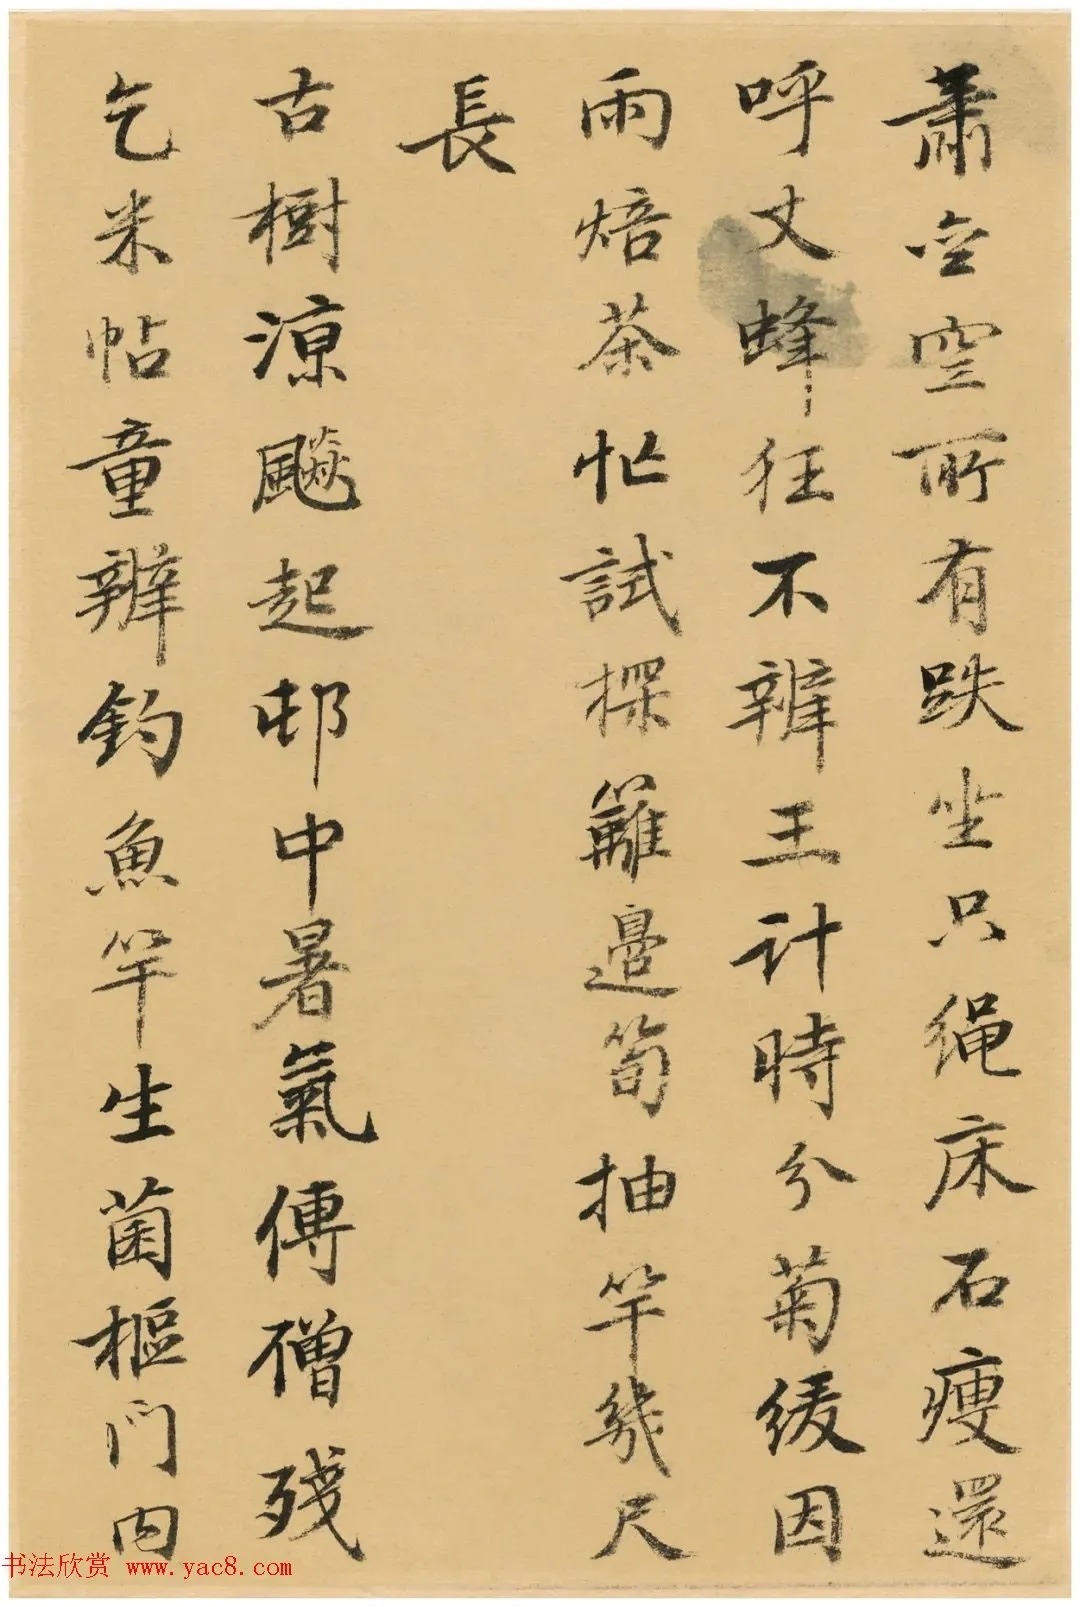 蕭室空所有趺坐只绳床石瘦還
呼丈蜂狂不辨王计時分菊緩因
雨焙茶忙試探籬邊筍抽竿幾尺
長
古樹涼飈起邨中暑氣傳僧殘
乞米帖童辨釣魚竿生菌樞門内
书法欣赏 www.yac8.com